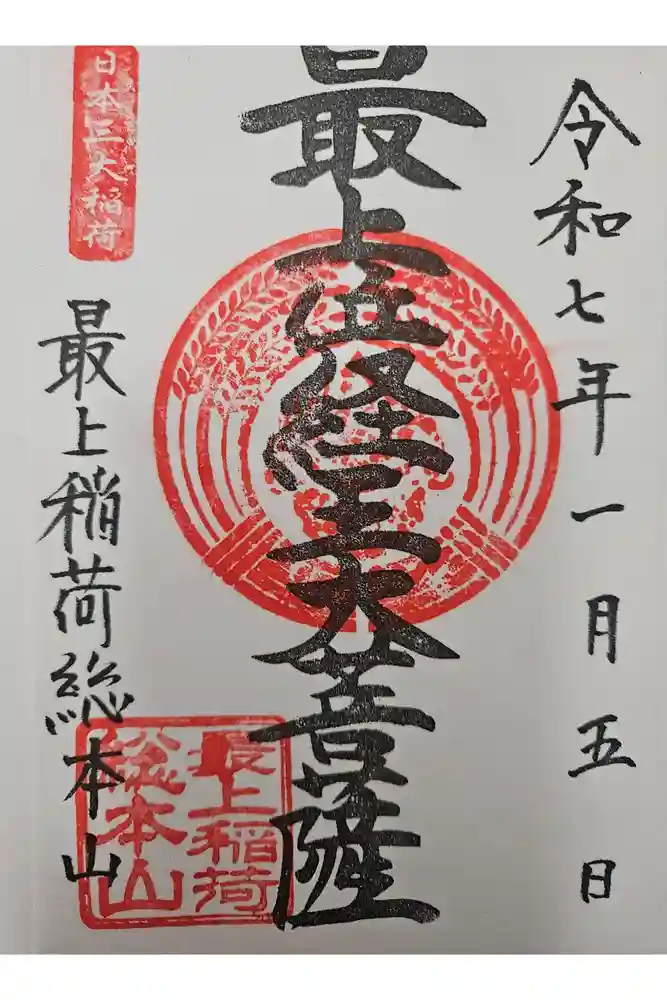 令和七年一月五日
最上位経王大菩薩
日本三大稲荷
最上稲荷総本山
最上稲荷
総本山